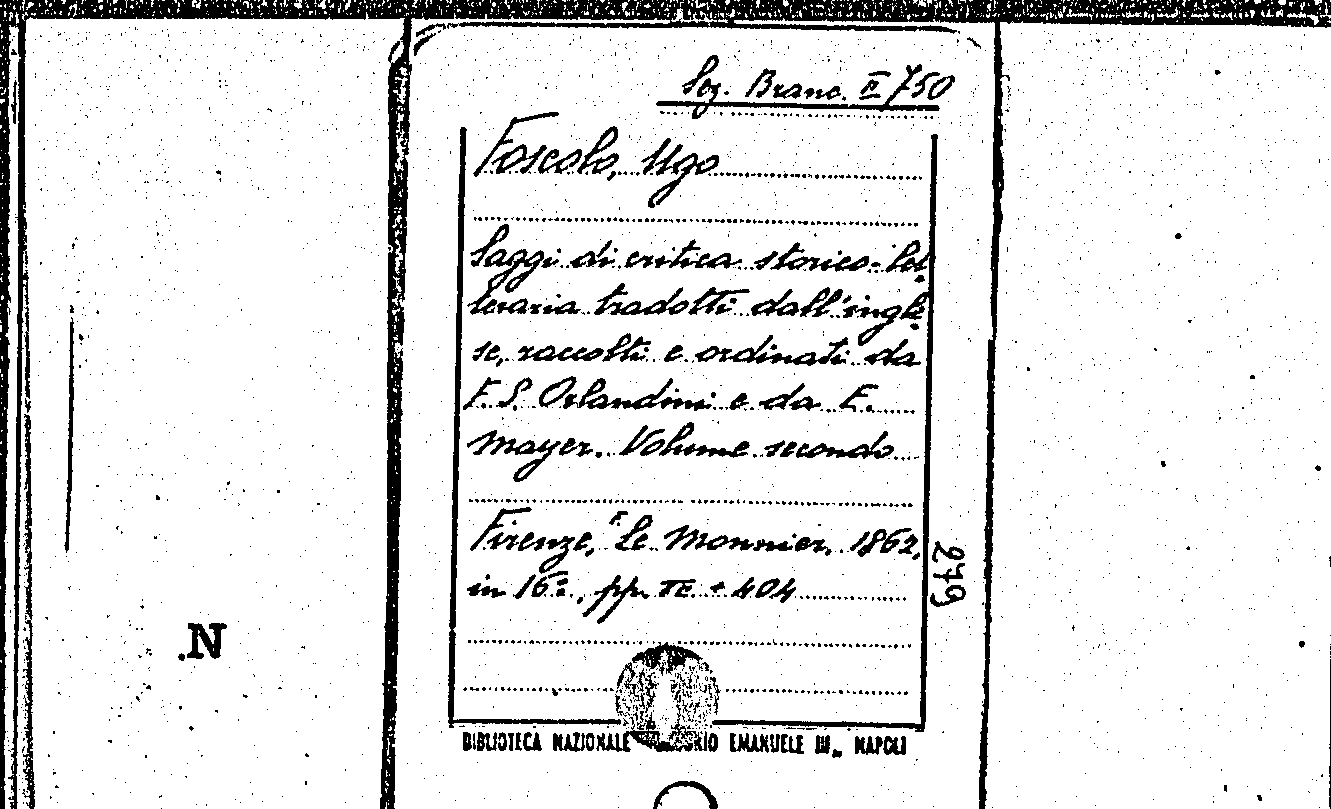 Sez. Branc. II 750
Foscolo, Ugo
Saggi di critica storico-let-
teraria tradotti dall'ingle-
se, raccolti e ordinati da
F. S. Orlandini e da E.
Mayer. Volume secondo
Firenze, Le Monnier, 1862,
in 16º, pp. + 404
279
N
BIBLIOTECA NAZIONALE EMANUELE III„ NAPOLI